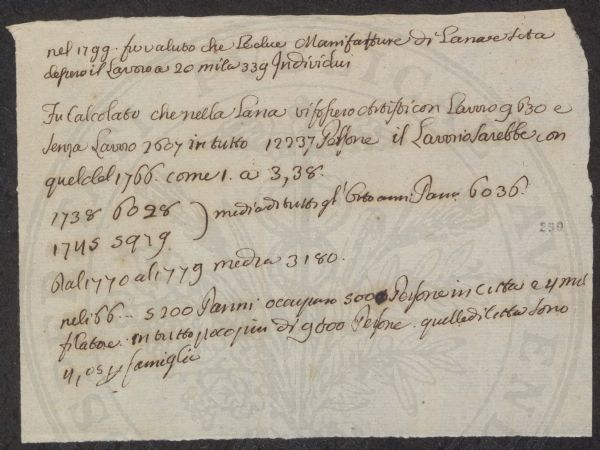 nel 1799. fu valuto che le due Manifatture di Lana e Seta
dassero il Lavoro a 20 mila 339 Individui
Fu Calcolato che nella Lana vi fossero Artisti con Lavoro 9630 e
senza Lavoro 2607 in tutto 12237 Persone il Lavorio sarebbe con
quelo del 1766. come 1. a 3,38.
1738 6028 ) media di tutti gl'Otto anni Panni 6036.
1745 5979
Dal 1770 al 1779 media 3180.
nel 66 5200 Panni occuparo 5000 Persone in Citta e 4 mil
filatore in tutto poco piu di 9600 Persone. quelle di Citta sono
4,05 p famiglia
299